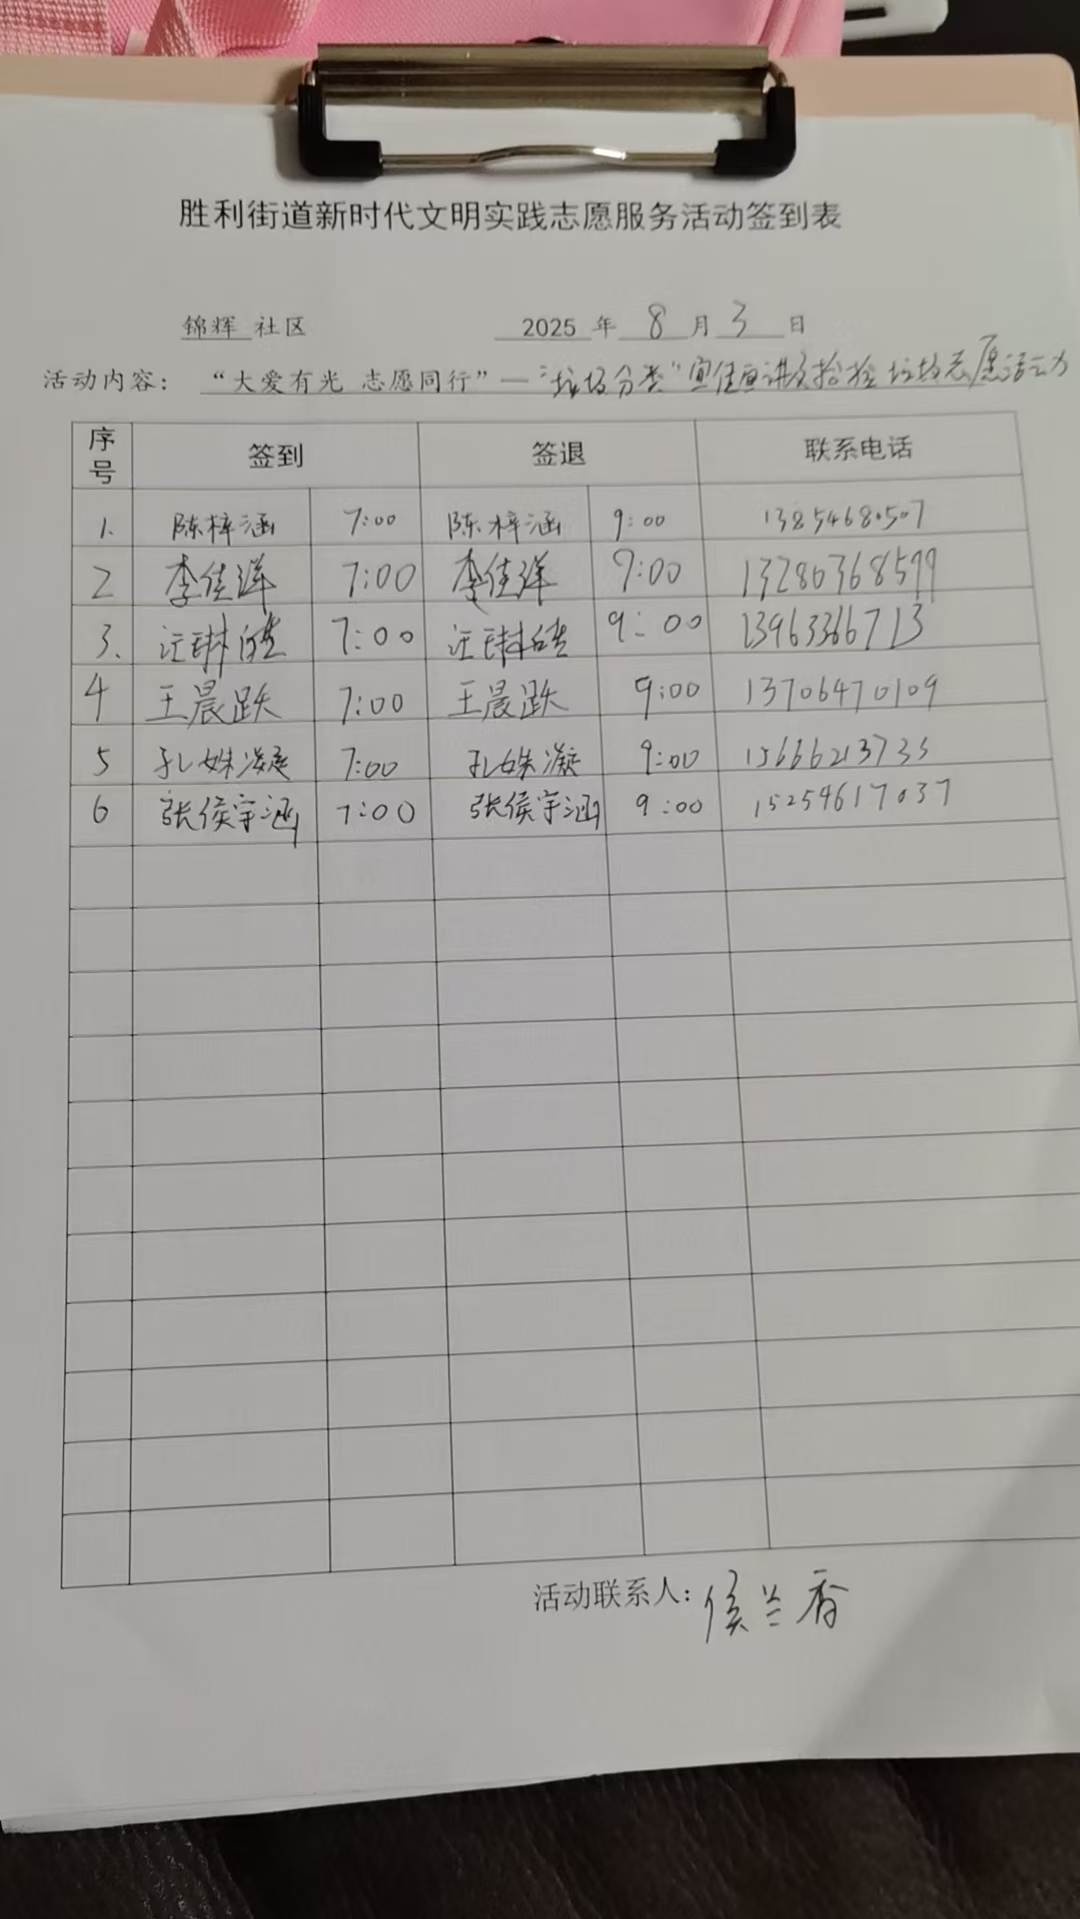 胜利街道新时代文明实践志愿服务活动签到表
锦辉 社区 2025 年 8 月 3 日
活动内容： “大爱有光 志愿同行”—“垃圾分类”宣传宣讲及捡拾垃圾志愿活动
序号 签到 签退 联系电话
1. 陈梓涵 7:00 陈梓涵 9:00 13854680507
2 李佳洋 7:00 李佳洋 9:00 13280368599
3. 汪琳皓 7:00 汪琳皓 9:00 13963366713
4 王晨跃 7:00 王晨跃 9:00 13706470109
5 孔姝凝 7:00 孔姝凝 9:00 15666213733
6 张侯宇涵 7:00 张侯宇涵 9:00 15254617037
活动联系人：侯兰香